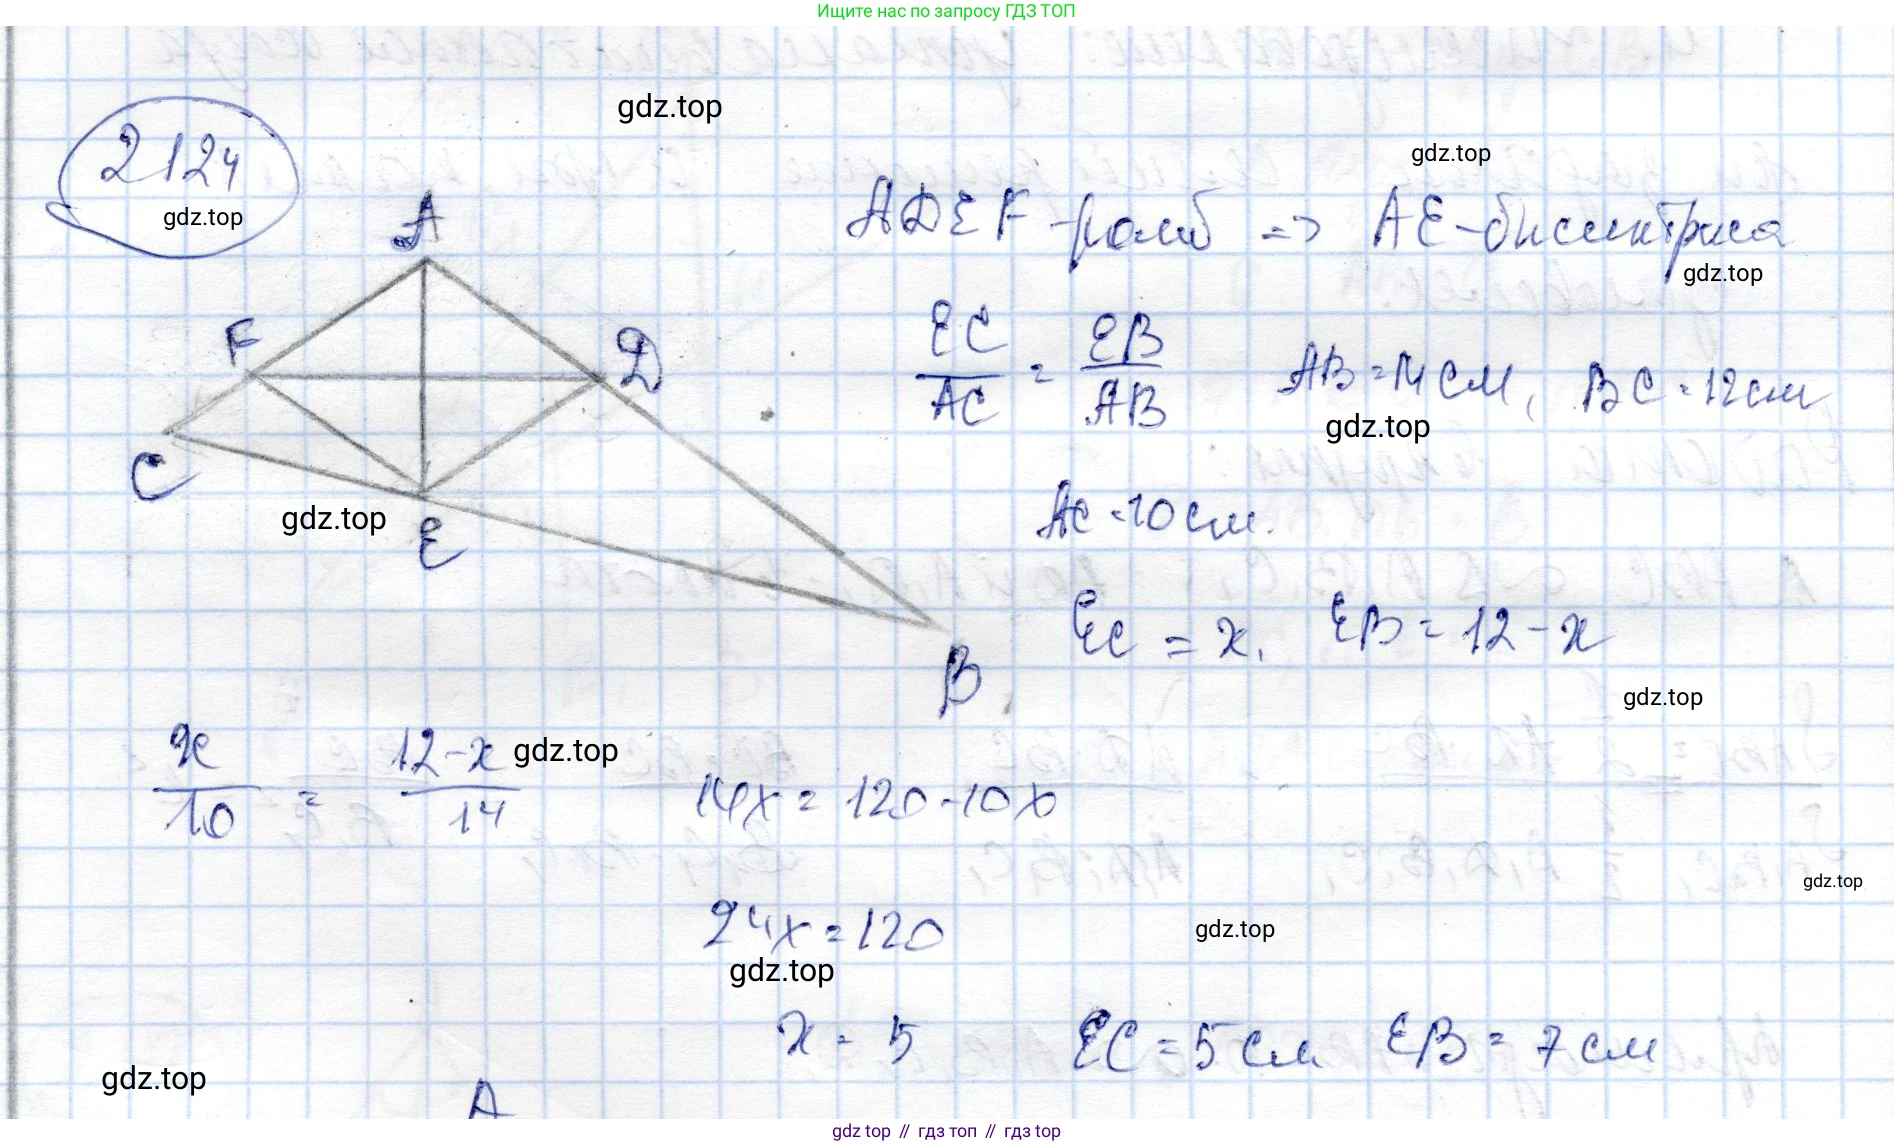 Ищите нас по запросу ГДЗ ТОП
gdz.top
gdz.top
2124
gdz.top
A
ADEF - ромб => AE - биссектриса
gdz.top
F
D
EC/AC = EB/AB AB = 14 см, BC = 12 см
gdz.top
C
AC = 10 см.
gdz.top
E
EC = x, EB = 12 - x
B
gdz.top
x/10 = 12-x/14 gdz.top 14x = 120 - 10x
gdz.top
24x = 120
gdz.top
gdz.top
x = 5 EC = 5 см EB = 7 см
gdz.top
A
gdz top // гдз топ // гдз top